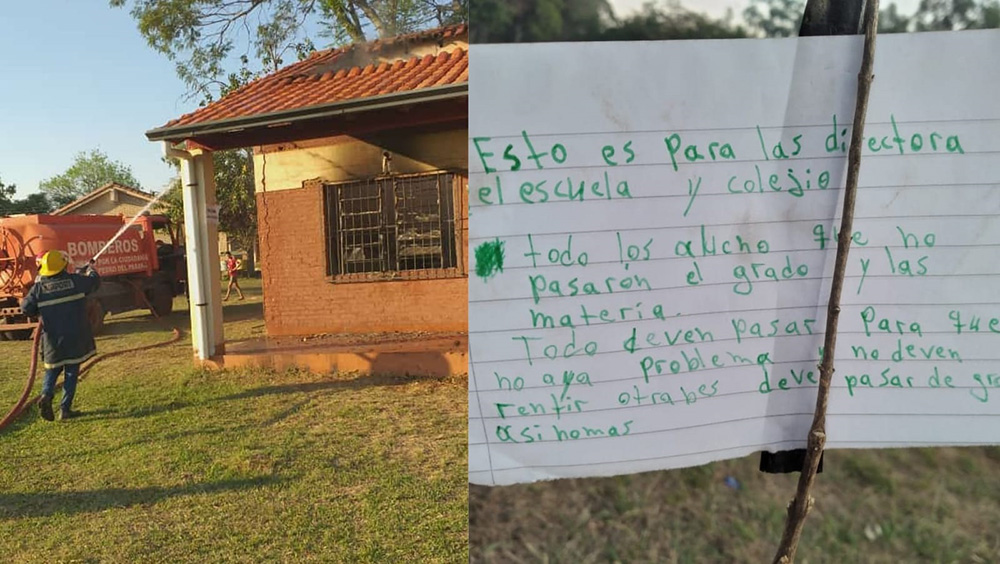 BOMBEROS
POR LA CIUDADANIA
Esto es para las directora
el escuela y colegio
todo los alucho que no
pasarón el grado y las
materia.
Todo deven pasar para que
no aya problema y no deven
rentir otrabes deve pasar de gra
asi nomas